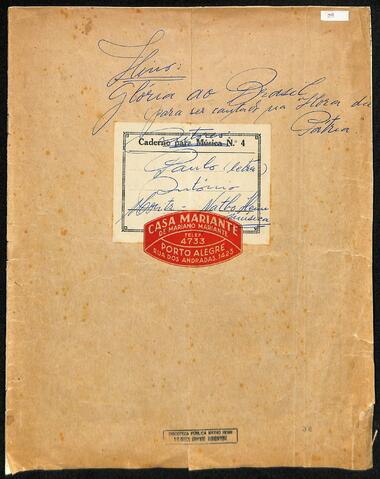 Hino:
Glória ao Brasil
para ser cantado na Hora da
Pátria
Caderno para Música N.º 4
Autores
Paulo (letra)
Antônio
Natho Henn
música
CASA MARIANTE
DE MARIANO MARIANTE
TELEF.
4733
PORTO ALEGRE
RUA DOS ANDRADAS, 1423
DISCOTECA PÚBLICA NATHO HENN